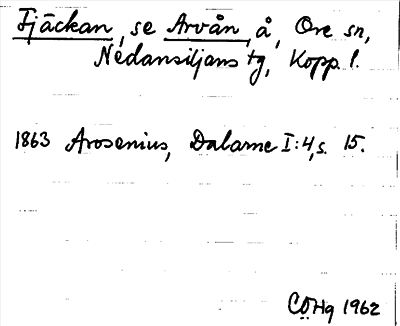 Fjäckan, se Arvån, å, Ore sn,
Nedansiljans tg, Kopp. l.
1863 Arosenius, Dalarne I:4, s. 15.
CÖHg 1962